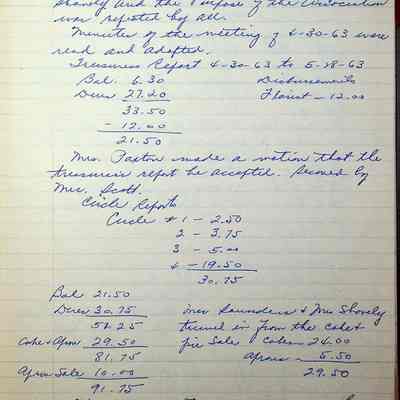 Shovely and the Purpose of the Association
was repeated by all.
Minutes of the meeting of 4-30-63 were
read and adopted.
Treasurers Report 4-30-63 to 5-28-63
Bal. 6.30 Disbursements
Dues 27.20 Florist - 12.00
33.50
- 12.00
21.50
Mrs. Paxton made a motion that the
treasurers report be accepted. Second by
Mrs. Scott.
Circle Reports
Circle #1 - 2.50
2 - 3.75
3 - 5.00
4 - 19.50
30.75
Bal 21.50
Dues 30.75 Mrs Saunders & Mrs Shovely
52.25 turned in from the cake &
Cake & Apron 29.50 pie Sale Cakes - 24.00
81.75 Aprons - 5.50
Apron Sale 10.00 29.50
91.75